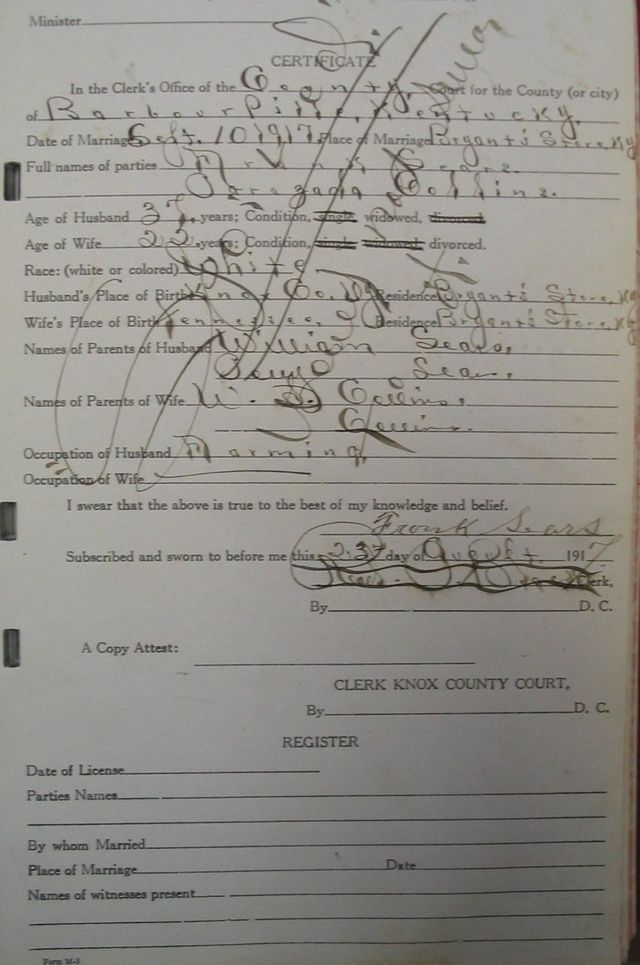 Minister
CERTIFICATE
In the Clerk's Office of the County Court for the County (or city)
of Barbourville, Kentucky.
Date of Marriage Sept. 10 1917, Place of Marriage Bryants Store, Ky
Full names of parties Frank Sears.
Collins.
Age of Husband 37, years; Condition, single widowed, divorced
Age of Wife 22, years; Condition, single widowed divorced.
Race: (white or colored) White
Husband's Place of Birth Knox Co. Ky Residence Bryants Store, Ky
Wife's Place of Birth Tennessee, Residence Bryants Store, Ky
Names of Parents of Husband William Sears,
Sears,
Names of Parents of Wife W. Collins,
Collins.
Occupation of Husband Farming,
Occupation of Wife
I swear that the above is true to the best of my knowledge and belief.
Frank Sears
Subscribed and sworn to before me this 23 day of August, 1917
Clerk,
By D. C.
A Copy Attest:
CLERK KNOX COUNTY COURT,
By D. C.
REGISTER
Date of License
Parties Names
By whom Married
Place of Marriage Date
Names of witnesses present